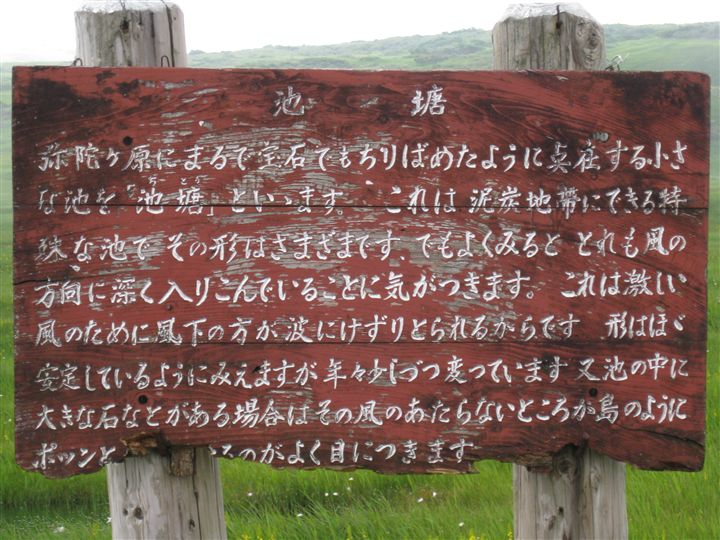 池塘
弥陀ヶ原にまるで宝石でもちりばめたように点在する小さ
な池を「池塘」といいます。これは泥炭地帯にできる特
殊な池で その形はさまざまです でもよくみると どれも風の
方向に深く入りこんでいることに気がつきます。これは激しい
風のために風下の方が波にけずりとられるからです 形はほゞ
安定しているようにみえますが年々少しづつ変っています 又池の中に
大きな石などがある場合はその風のあたらないところが島のように
ポツンと るのがよく目につきます